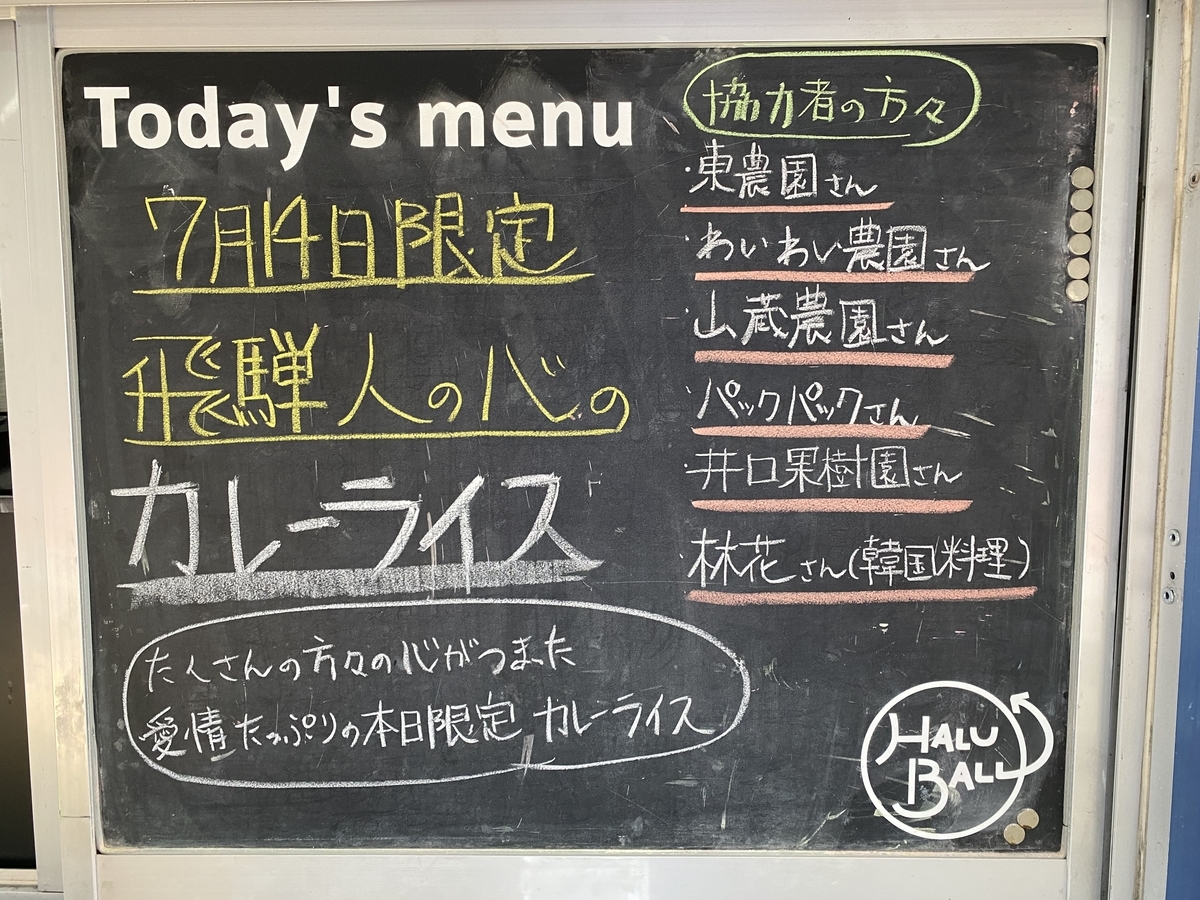 Today's menu
7月14日限定
飛騨人の心の
カレーライス
たくさんの方々の心がつまった
愛情たっぷりの本日限定 カレーライス
協力者の方々
・東農園さん
・わいわい農園さん
・山蔵農園さん
・パックパックさん
・井口果樹園さん
・林花さん(韓国料理)
HALU
BALL